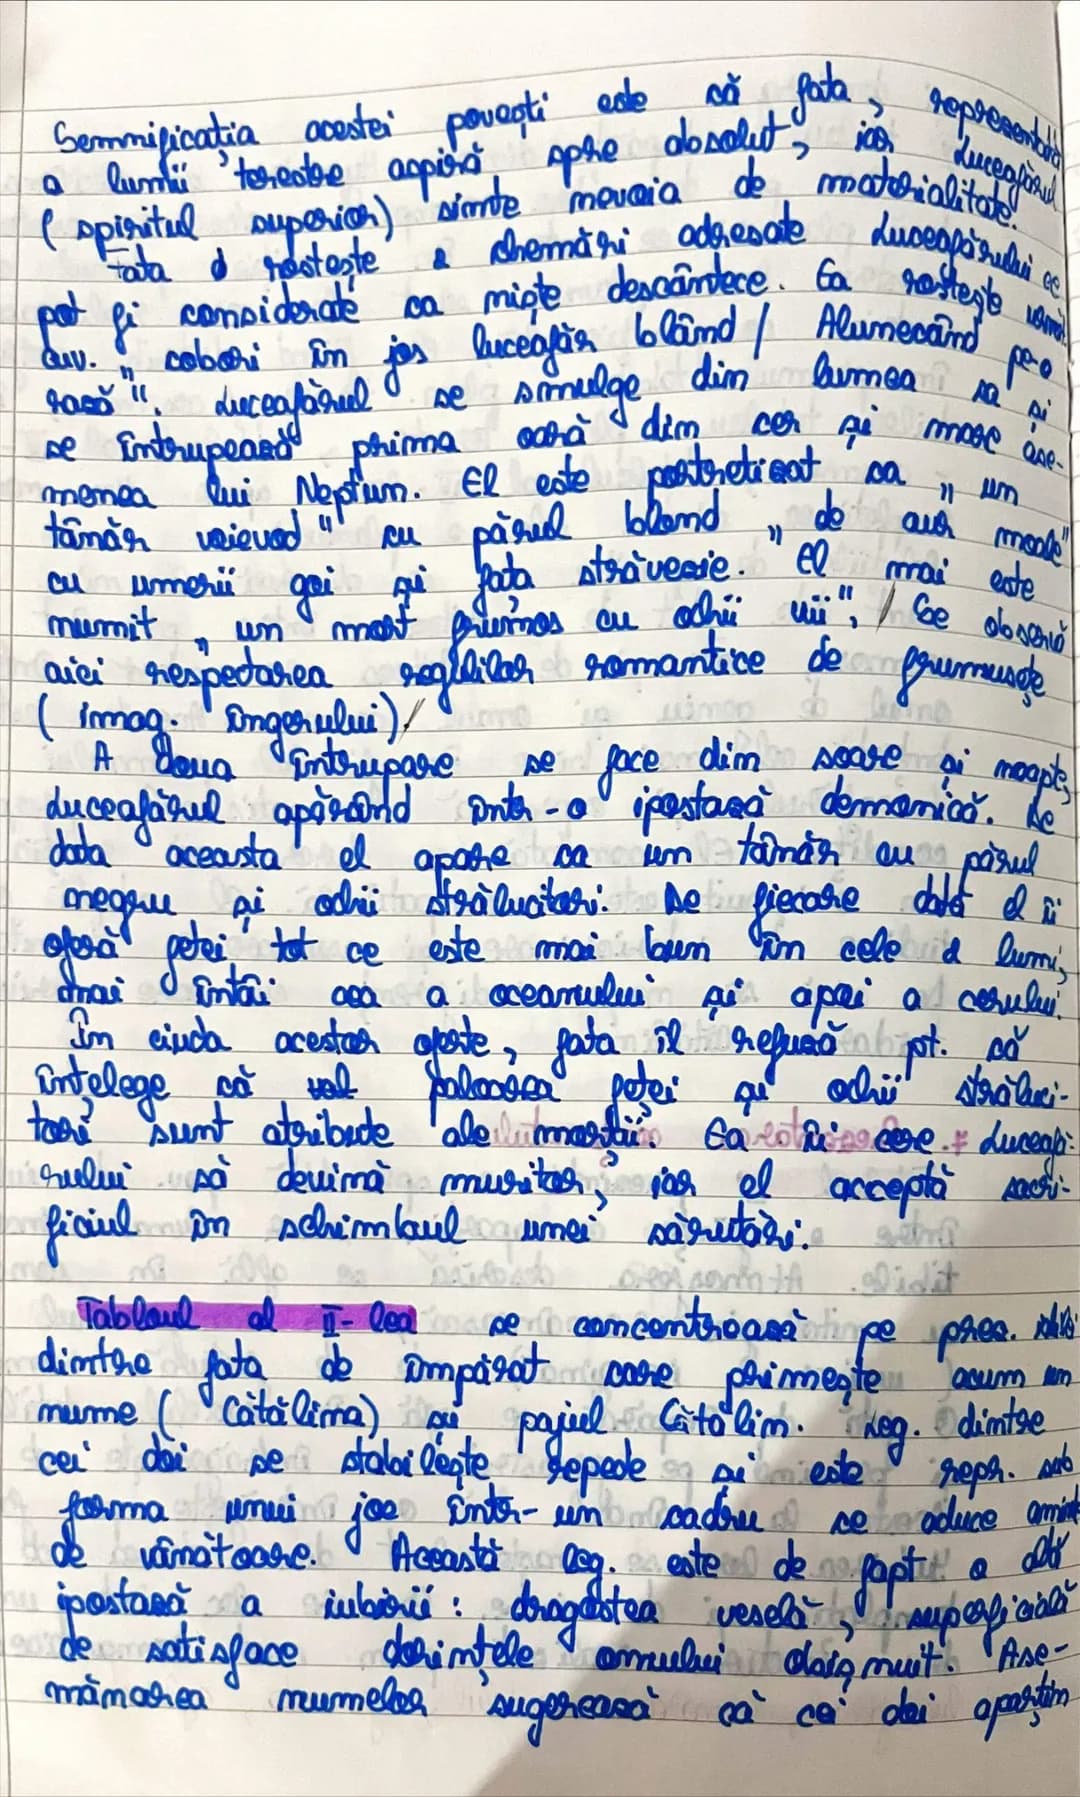 Semnificația acestei povești este că fata, reprezentantă
a lumii terestre aspiră spre absolut, iar Luceafărul
( spiritul superior) simte nevoia de materialitate.
Fata rostește 2 chemări adresate Luceafărului ce
pot fi considerate ca niște descântece. Ea rostește urmă.
cuv. „ cobori în jos luceafăr blând / Alunecând pe-o
rază". Luceafărul se smulge din lumea sa și
se întrupează prima oară din cer și mare ase-
menea lui Neptun. El este portretizat ca „ un
tânăr voievod" cu părul blond „ de aur moale"
cu umerii goi și fața străvezie. El mai este
numit „ un mort frumos cu ochii vii", / Se observă
aici respectarea regulilor romantice de frumusețe
( imag. îngerului)/
A doua întrupare se face din soare și noapte,
Luceafărul apărând într-o ipostază demonică. De
data aceasta el apare ca un tânăr cu părul
negru și ochii strălucitori. De fiecare dată el îi
oferă fetei tot ce este mai bun în cele 2 lumi,
mai întâi cea a oceanului și apoi a cerului.
În ciuda acestor oferte, fata îl refuză pt. că
înțelege că paloarea feței și ochii străluci-
tori sunt atribute ale morții. Ea îi cere Luceafă-
rului să devină muritor, iar el acceptă sacri-
ficiul în schimbul unei sărutări.
Tabloul al II-lea se concentrează pe prez. idilei
dintre fata de împărat care primește acum un
nume ( Cătălina) și pajul Cătălin. Leg. dintre
cei doi se stabilește repede și este repr. sub
forma unui joc într-un cadru ce aduce amint.
de vânătoare. Această leg. este de fapt o altă
ipostază a iubirii : dragostea veselă, superficială
de satisface dorințele omului obișnuit. Ase-
mănarea numelor sugerează că cei doi aparțin